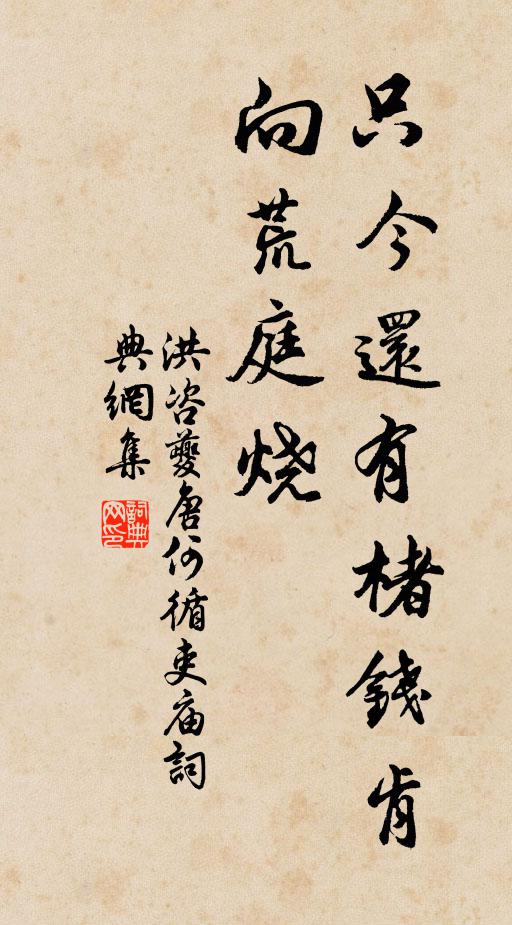 只今還有楮錢肯
向荒庭烧
洪咨夔唐何循吏庙詞
典網集
詞典网印